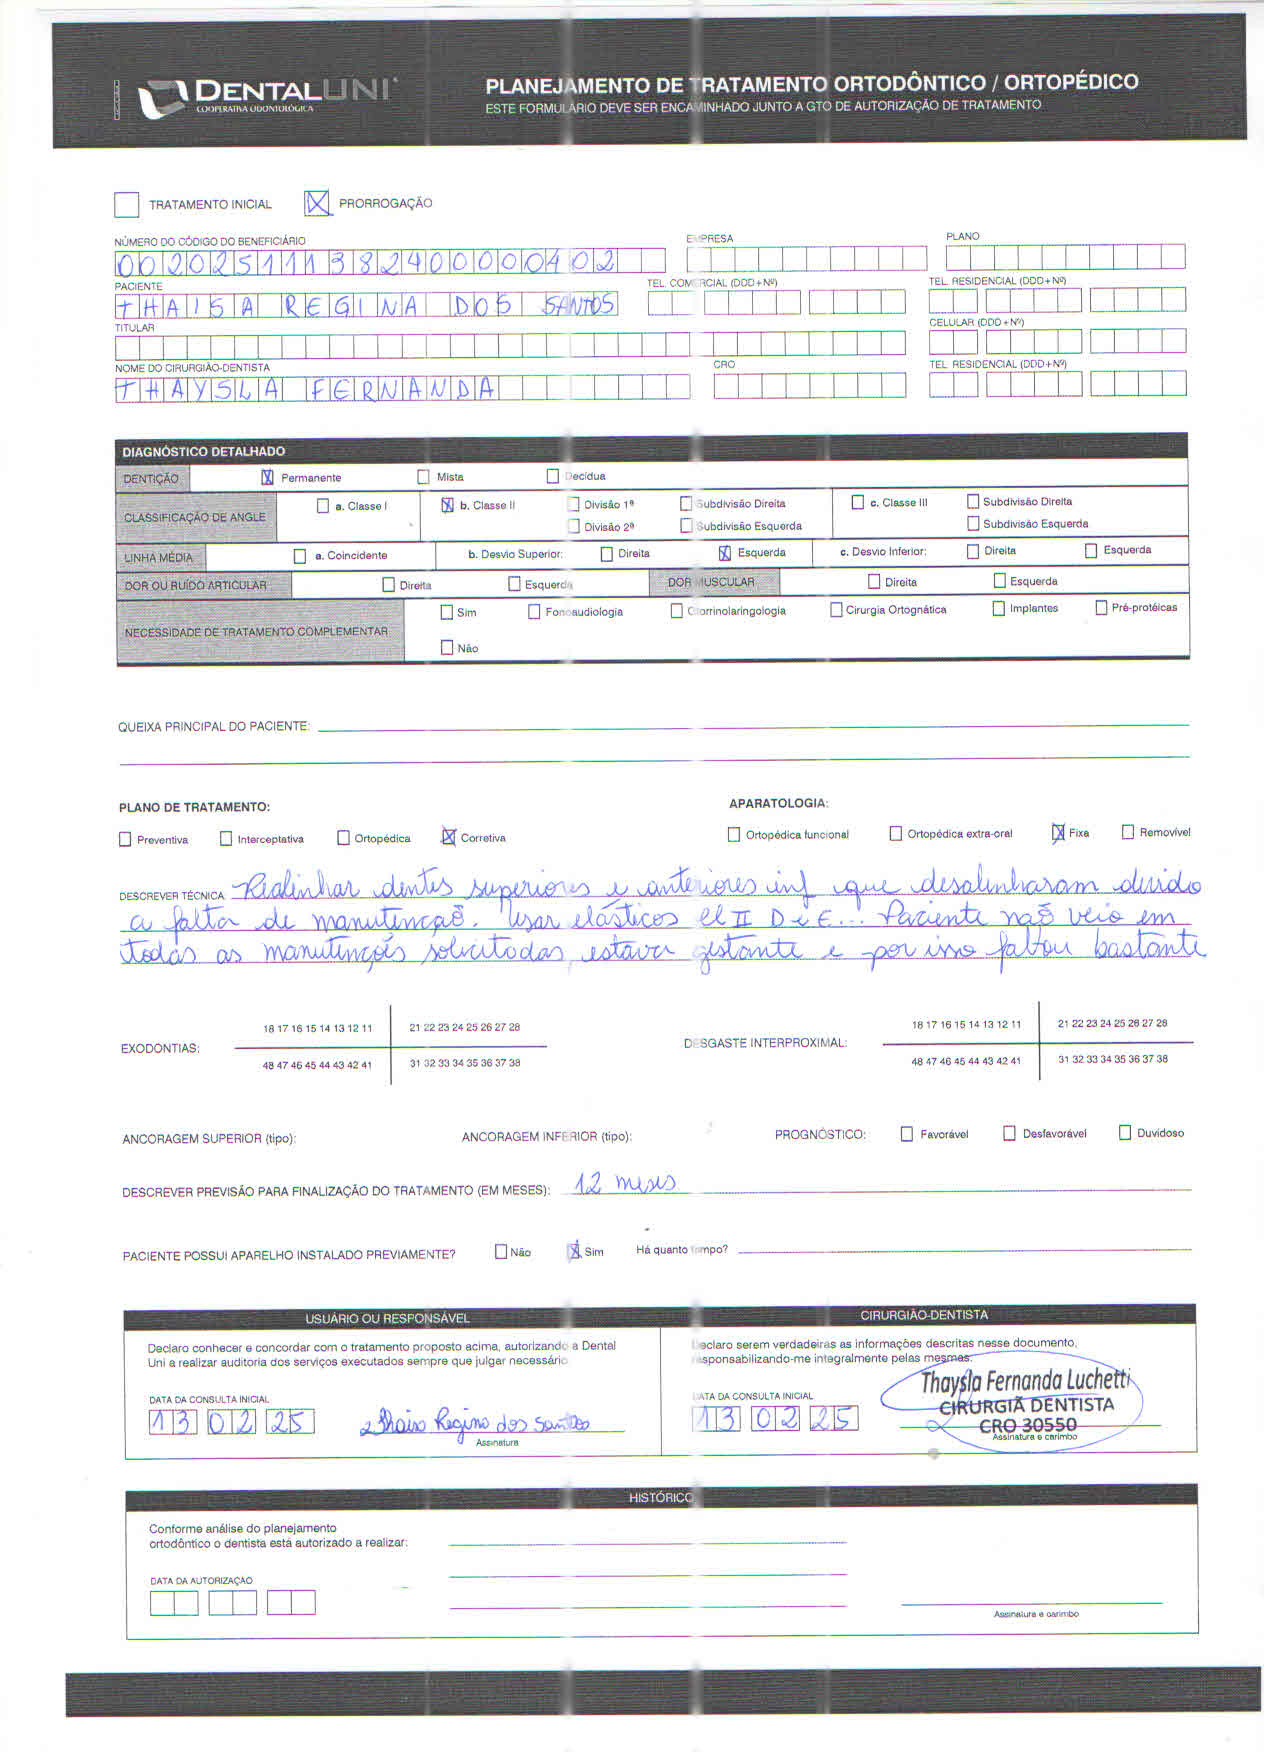 DENTALUNI
COOPERATIVA ODONTOLÓGICA
PLANEJAMENTO DE TRATAMENTO ORTODÔNTICO / ORTOPÉDICO
ESTE FORMULÁRIO DEVE SER ENCAMINHADO JUNTO A GTO DE AUTORIZAÇÃO DE TRATAMENTO
TRATAMENTO INICIAL PRORROGAÇÃO
NÚMERO DO CÓDIGO DO BENEFICIÁRIO EMPRESA PLANO
002025111382400000402
PACIENTE TEL. COMERCIAL (DDD+Nº) TEL. RESIDENCIAL (DDD+Nº)
THAISA REGINA DOS SANTOS
TITULAR CELULAR (DDD+Nº)
NOME DO CIRURGIÃO-DENTISTA CRO TEL. RESIDENCIAL (DDD+Nº)
THAYSLA FERNANDA
DIAGNÓSTICO DETALHADO
DENTIÇÃO Permanente Mista Decídua
CLASSIFICAÇÃO DE ANGLE a. Classe I b. Classe II Divisão 1ª Subdivisão Direita c. Classe III Subdivisão Direita
Divisão 2ª Subdivisão Esquerda Subdivisão Esquerda
LINHA MÉDIA a. Coincidente b. Desvio Superior: Direita Esquerda c. Desvio Inferior: Direita Esquerda
DOR OU RUÍDO ARTICULAR Direita Esquerda DOR MUSCULAR Direita Esquerda
NECESSIDADE DE TRATAMENTO COMPLEMENTAR Sim Fonoaudiologia Otorrinolaringologia Cirurgia Ortognática Implantes Pré-protéicas
Não
QUEIXA PRINCIPAL DO PACIENTE:
PLANO DE TRATAMENTO: APARATOLOGIA:
Preventiva Interceptativa Ortopédica Corretiva Ortopédica funcional Ortopédica extra-oral Fixa Removível
DESCREVER TÉCNICA: Realinhar dentes superiores e anteriores inf que desalinharam devido
a falta de manutenção. Usar elásticos cl II D e E... Paciente não veio em
todas as manutenções solicitadas, estava gestante e por isso faltou bastante
18 17 16 15 14 13 12 11 21 22 23 24 25 26 27 28 18 17 16 15 14 13 12 11 21 22 23 24 25 26 27 28
EXODONTIAS: DESGASTE INTERPROXIMAL:
48 47 46 45 44 43 42 41 31 32 33 34 35 36 37 38 48 47 46 45 44 43 42 41 31 32 33 34 35 36 37 38
ANCORAGEM SUPERIOR (tipo): ANCORAGEM INFERIOR (tipo): PROGNÓSTICO: Favorável Desfavorável Duvidoso
DESCREVER PREVISÃO PARA FINALIZAÇÃO DO TRATAMENTO (EM MESES): 12 meses
PACIENTE POSSUI APARELHO INSTALADO PREVIAMENTE? Não Sim Há quanto tempo?
USUÁRIO OU RESPONSÁVEL CIRURGIÃO-DENTISTA
Declaro conhecer e concordar com o tratamento proposto acima, autorizando a Dental Declaro serem verdadeiras as informações descritas nesse documento,
Uni a realizar auditoria dos serviços executados sempre que julgar necessário. responsabilizando-me integralmente pelas mesmas.
Thaysla Fernanda Luchetti
DATA DA CONSULTA INICIAL DATA DA CONSULTA INICIAL CIRURGIÃ DENTISTA
13 02 25 Thaisa Regina dos Santos 13 02 25 CRO 30550
Assinatura Assinatura e carimbo
HISTÓRICO
Conforme análise do planejamento
ortodôntico o dentista está autorizado a realizar:
DATA DA AUTORIZAÇÃO
Assinatura e carimbo